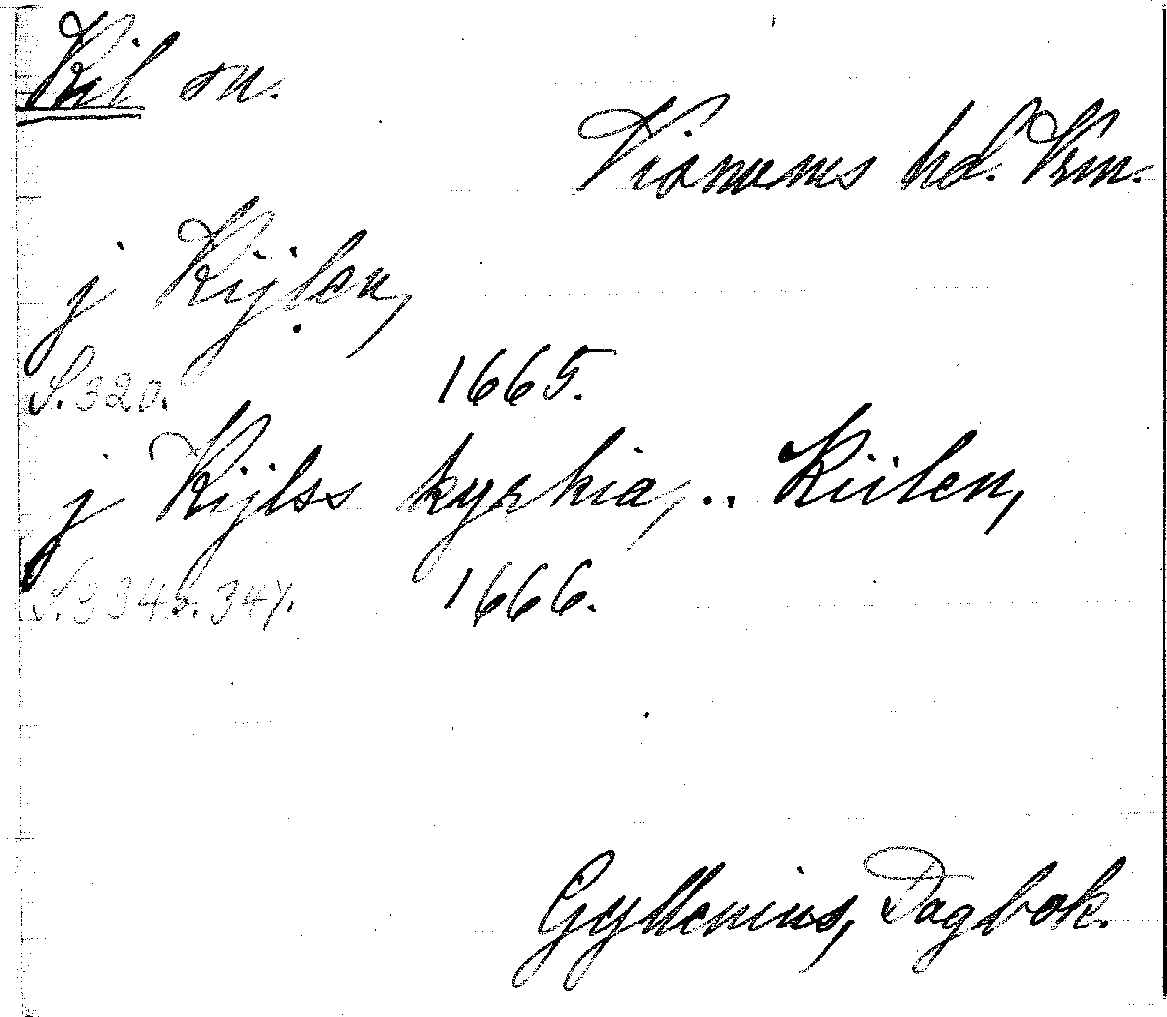 Kil sn.
Visnums hd. Vrm.
j Kijlen,
S. 320. 1665.
j Kijlss kyrkia, .. Kiilen,
S. 334, 347. 1666.
Gyllenius, Dagbok.